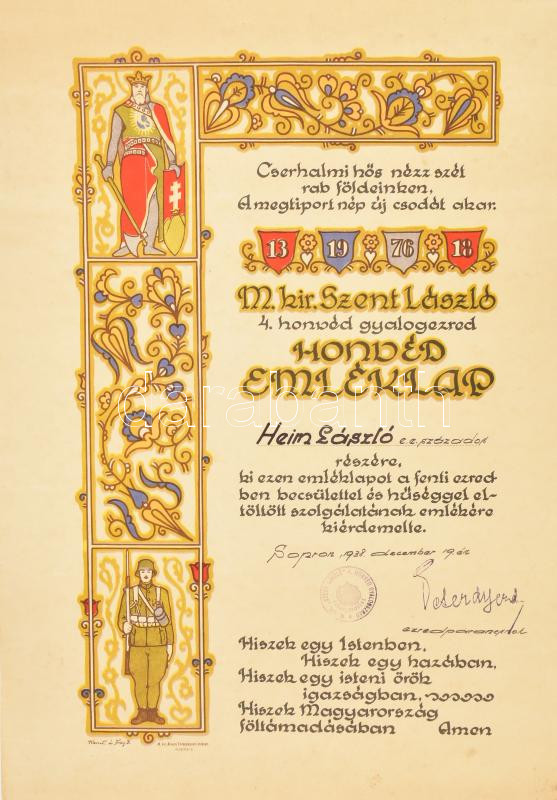 Cserhalmi hős nézz szét
rab földeinken,
A megtiport nép új csodát akar.
13 19 76 18
M. kir. Szent László
4. honvéd gyalogezred
HONVÉD
EMLÉKLAP
darabanth
Heim László e.é. százados
részére,
ki ezen emléklapot a fenti ezred-
ben becsülettel és hűséggel el-
töltött szolgálatának emlékére
kiérdemelte.
Sopron, 1938 december 19.én
ezredparancsnok
Hiszek egy Istenben,
Hiszek egy hazában,
Hiszek egy isteni örök
igazságban,
Hiszek Magyarország
föltámadásában Amen